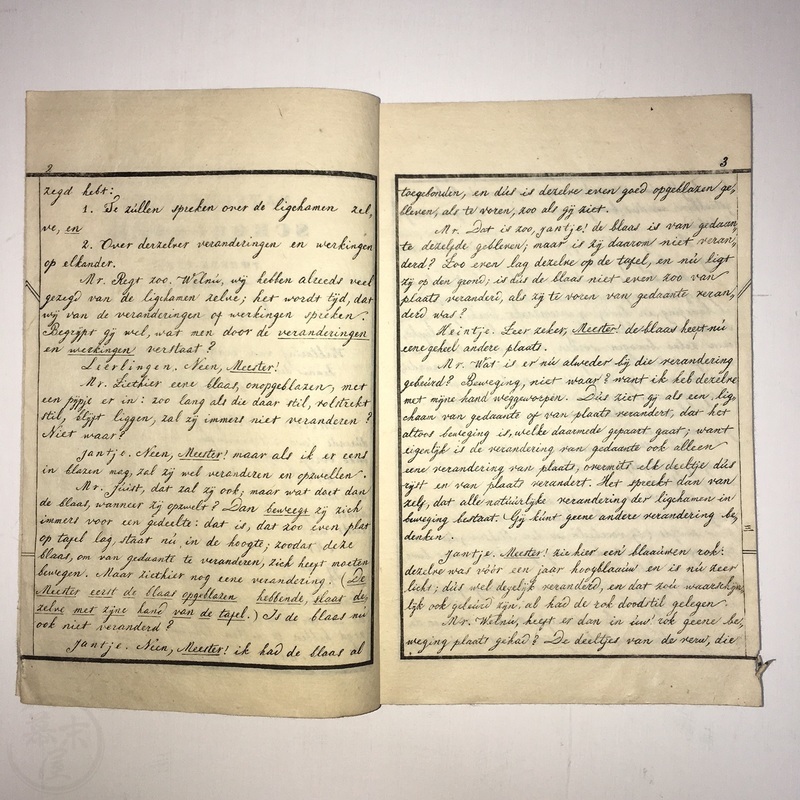 2
zegd hebt:
1. Te zúllen spreken over de ligchamen zel,
ve, en
2. Over derzelver veranderingen en werkingen
op elkander.
Mr. Regt zoo. Welnú, wij hebben alreeds veel
gezegd van de ligchamen zelve; het wordt tijd, dat
wij van de veranderingen of werkingen spreken.
Begrijpt gij wel, wat men door de veranderingen
en werkingen verstaat?
Leerlingen. Neen, Meester!
Mr. Ziethier eene blaas, onopgeblazen, met
een pijpje er in: zoo lang als die daar stil, rolstrekt
stil, blijft liggen, zal zij immers niet veranderen?
Niet waar?
Jantje. Neen, Meester! maar als ik er eens
in blazen mag, zal zij wel veranderen en opzwellen.
Mr. Júist, dat zal zij ook; maar wat doet dan
de blaas, wanneer zij opzwelt? Dan beweegt zij zich
immers voor een gedeelte: dat is, dat zoo even plat
op tafel lag, staat nú in de hoogte; zoodat deze
blaas, om van gedaante te veranderen, zich heeft moeten
bewegen. Maar ziethier nog eene verandering. (De
Meester eerst de blaas opgeblazen hebbende, slaat de,
zelve met zijne hand van de tafel.) Is de blaas nú
ook niet veranderd?
Jantje. Neen, Meester! ik had de blaas al
3
toegebonden, en dús is dezelve even goed opgeblazen ge,
bleven, als te voren, zoo als gij ziet.
Mr. Dat is zoo, jantje! de blaas is van gedaan,
te dezelfde gebleven; maar is zij daarom niet veran,
derd? Zoo even lag dezelve op de tafel, en nú ligt
zij op den grond; is dús de blaas niet even zoo van
plaats veranderd, als zij te voren van gedaante veran,
derd was?
Heintje. Zeer zeker, Meester! de blaas heeft nú
eene geheel andere plaats.
Mr. Wat is er nú alweder bij die verandering
gebeúrd? Beweging, niet waar? want ik heb dezelve
met mijne hand weggeworpen. Dús ziet gij als een lig,
chaam van gedaante of van plaats verandert, dat het
altoos beweging is, welke daarmede gepaart gaat; want
eigenlijk is de verandering van gedaante ook alleen
eene verandering van plaats, overmits elk deeltje dús
rijst en van plaats verandert. Het spreekt dan van
zelf, dat alle natúurlijke verandering der ligchamen in
beweging bestaat. Gij kúnt geene andere verandering be,
denken.
Jantje. Meester! zie hier een' blaaúwen rok:
dezelve was vóór een jaar hoogblaaúw en is nú zeer
licht; dús wel degelijk veranderd, en dat zoú waarschijn,
lijk ook gebeúrd zijn, al had de rok doodstil gelegen.
Mr. Welnú, heeft er dan in úw' rok geene be,
weging plaats gehad? De deeltjes van de verw, die